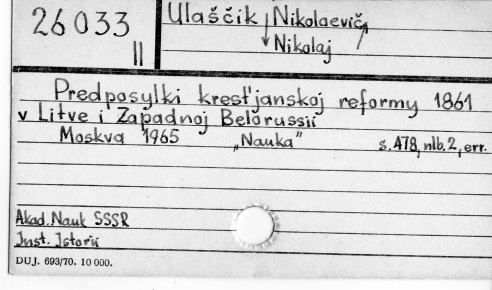 26033
II
Ulaščik, Nikolaevič
Nikolaj
Predposylki krest'janskoj reformy 1861
v Litve i Zapadnoj Belorussii
Moskva 1965 „Nauka" s. 478, nlb. 2, err.
Akad. Nauk SSSR
Inst. Istorii
DUJ. 693/70. 10 000.